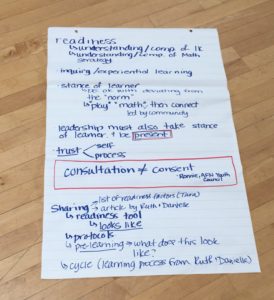 readiness
↳ understanding/comp. of IK
↳ understanding/comp. of Math
Strategy
inquiry/experiential learning
stance of learner
↳ be ok with deviating from
the "norm"
↳ play "math", then connect
led by community
leadership must also take stance
of learner, & be present
trust → self
↳ process
consultation ≠ consent
- Ronnie, AFN Youth
Council
Sharing → list of readiness factors (Tara)
→ article by Ruth & Danielle
↳ readiness tool
↳ looks like
↳ protocols
↳ pre-learning → what does this look
like?
↳ cycle (learning process from Ruth & Danielle)